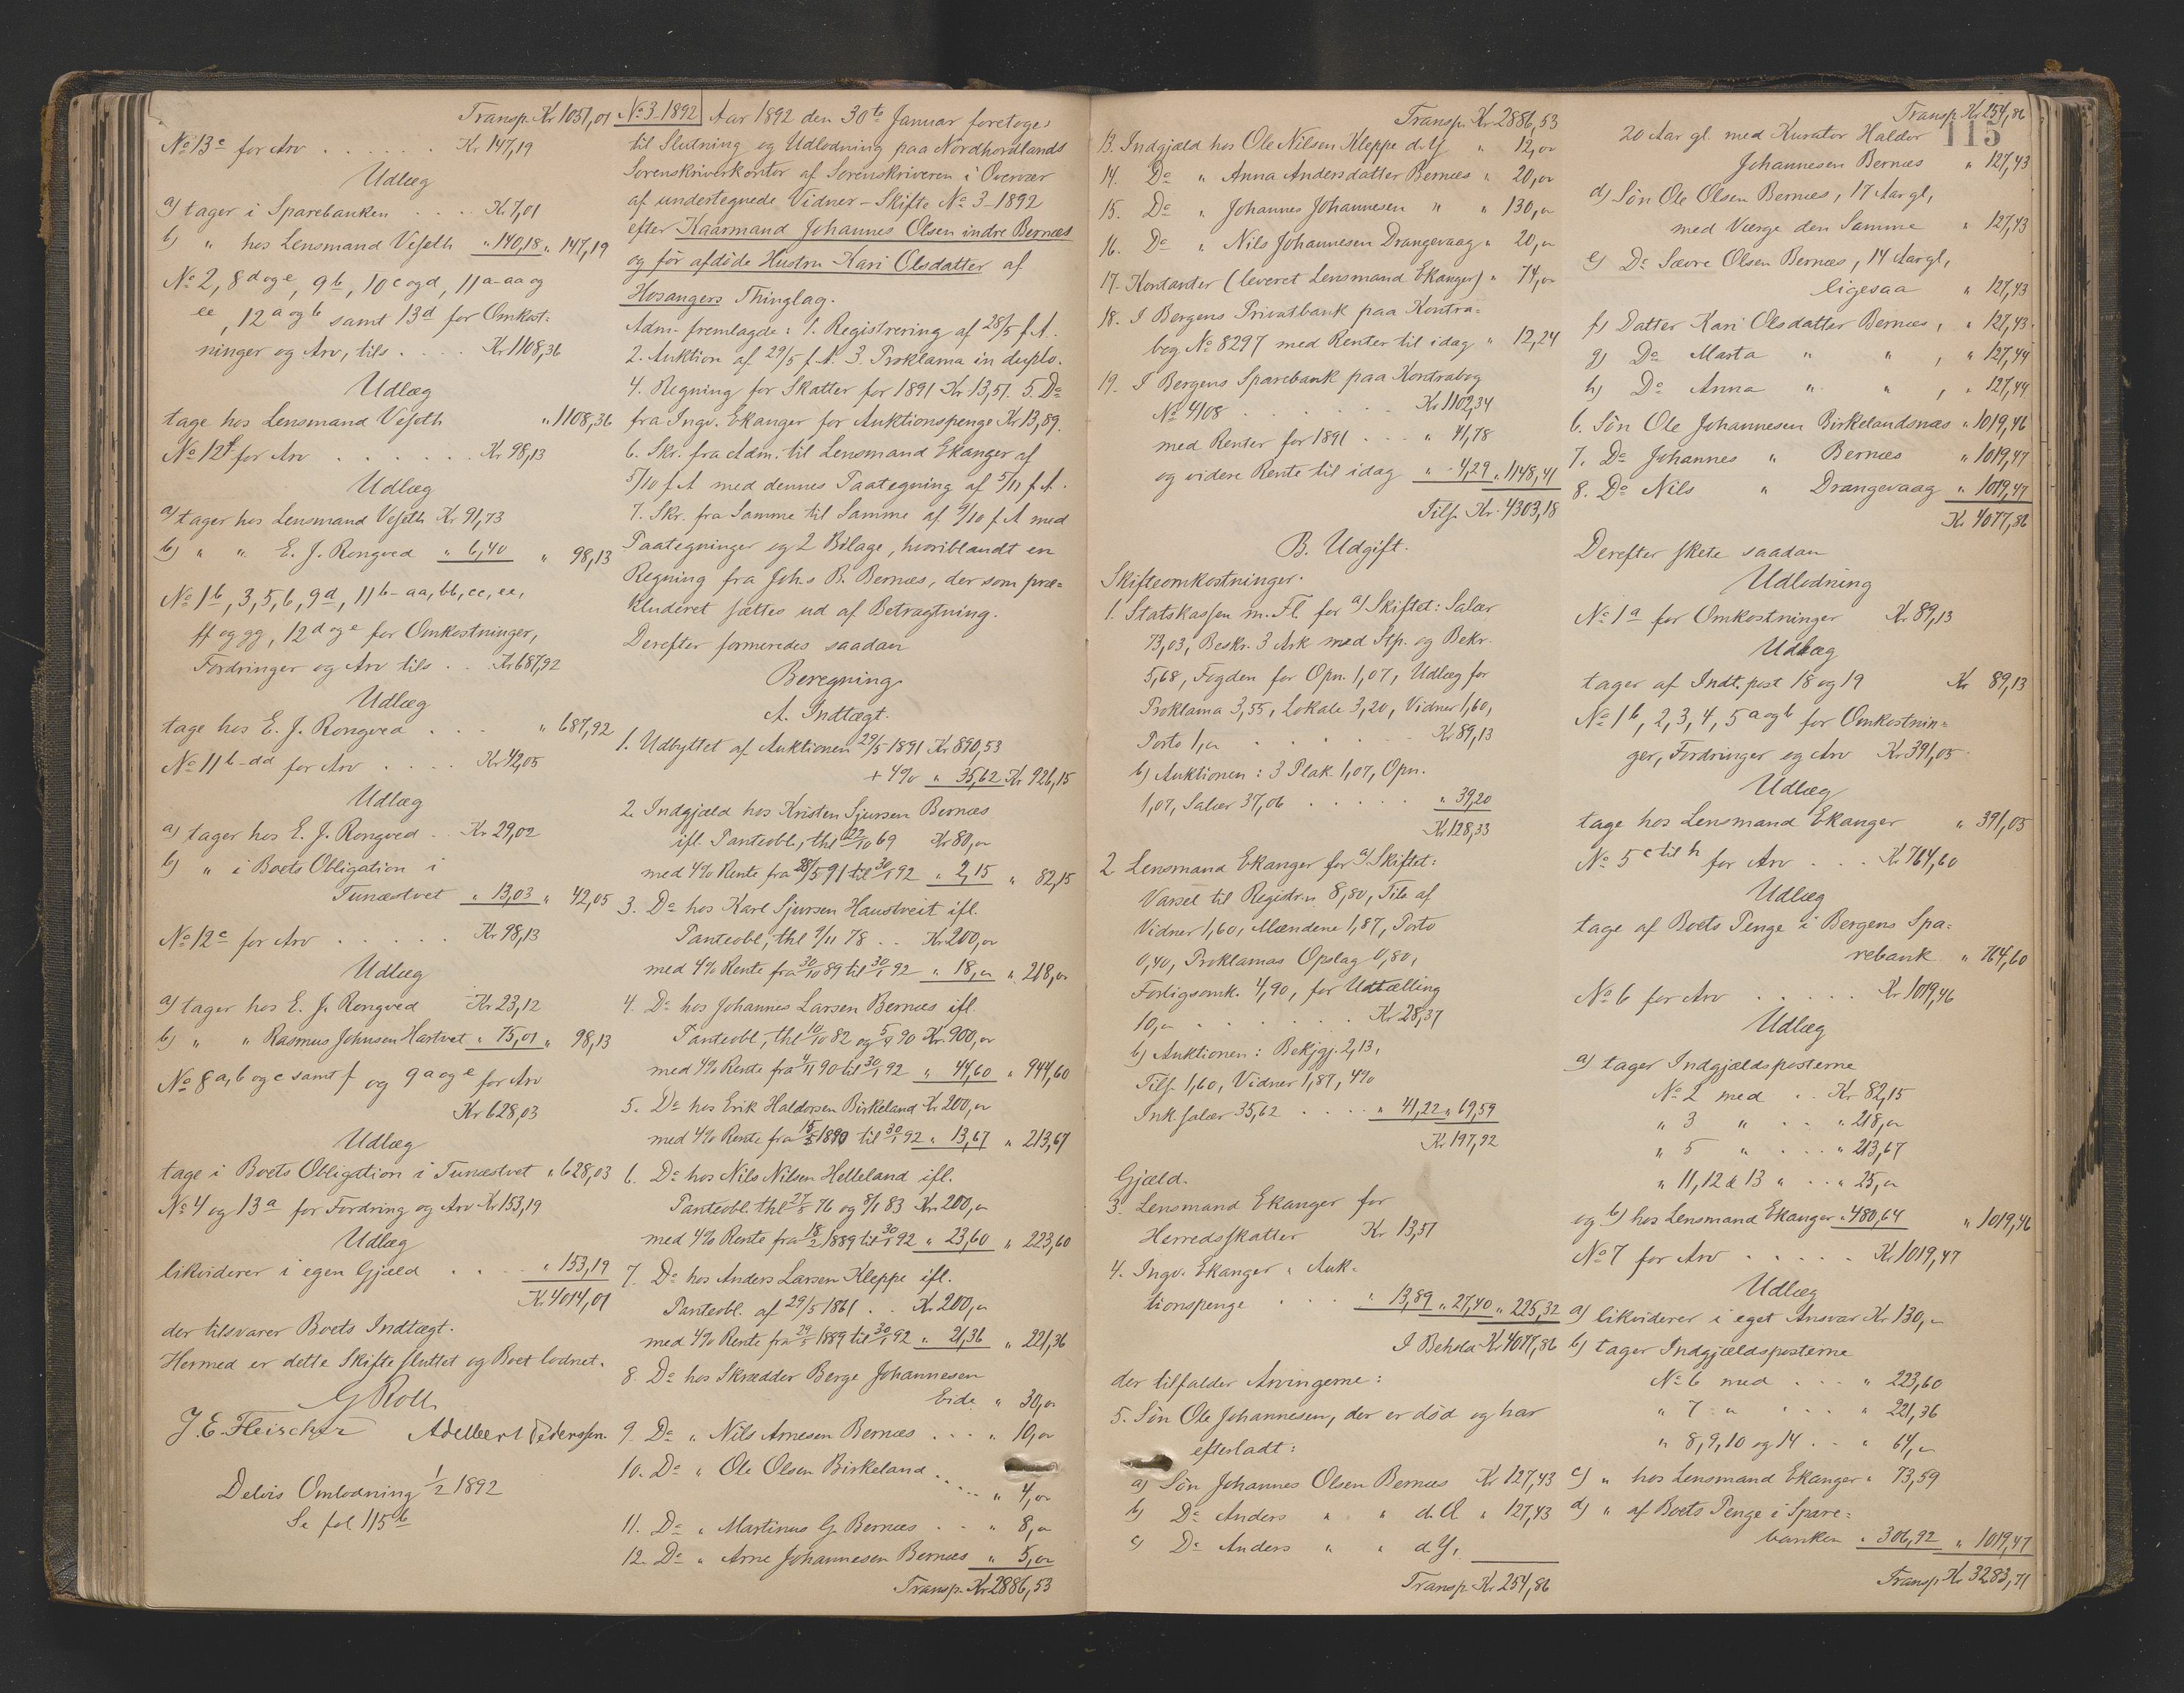 Transp. Kr 1051,01
No 13c for Arv . . . . . . Kr. 147,19
Udlæg
a) tager i Sparebanken . . . Kr. 7,01
b) " hos Lensmand Vefseth " 140,18 " 147,19
No 2, 8 d og e, 9 b, 10 c og d, 11 a-aa og
ee, 12 a og b samt 13 d for Omkost-
ninger og Arv, tils. . . . Kr 1108,36
Udlæg
tage hos Lensmand Vefseth " 1108,36
No 12 f for Arv . . . . . . Kr. 98,13
Udlæg
a) tager hos Lensmand Vefseth Kr 91,73
b) " " E. J. Rongved " 6,40 " 98,13
No 1b, 3, 5, 6, 9d, 11 b- aa, bb, cc, ee,
ff og gg, 12 d og e for Omkostninger,
Fordringer og Arv tils . . Kr 687,92
Udlæg
tage hos E. J. Rongved . . . " 687,92
No 11 b-dd for Arv . . . . Kr 42,05
Udlæg
a) tager hos E. J. Rongved . . Kr. 29,02
b) " i Boets Obligation i
Tunæstvet " 13,03 " 42,05
No 12c for Arv . . . . . Kr 98,13
Udlæg
a) tager hos E. J. Rongved Kr. 23,12
b) " " Rasmus Johnsen Hartvet " 75,01 " 98,13
No 8 a, b og c samt f og 9 a og e for Arv
Kr 628,03
Udlæg
tage i Boets Obligation i Tunæstvet " 628,03
No 4 og 13 a for Fordring og Arv Kr 153,19
Udlæg
likviderer i egen Gjæld . . . " 153,19
Kr. 4014,01
der tilsvarer Boets Indtægt.
Hermed er dette Skifte sluttet og Boet lodnet.
G Roll
J. E. Fleischer Adelbert Pederssen.
Delvis Omlodning 1/2 1892
Se fol 115 b
No 3 1892 Aar 1892 den 30te Januar foretoges
til Slutning og Udlodning paa Nordhordlands
Sorenskriverkontor af Sorenskriveren i Overvær
af undertegnede Vidner - Skifte No 3 - 1892
efter Kaarmand Johannes Olsen indre Bernæs
og før afdöde Hustru Kari Olsdatter af
Hosangers Thinglag.
Adm. fremlagde: 1. Registrering af 28/5 f. A.
2. Auktion af 29/5 f. A. 3. Proklama in duplo.
4. Regning for Skatter for 1891 Kr 13,51. 5. Do
fra Ingv. Ekanger for Auktionspenge Kr 13,89.
6. Skr. fra Adm. til Lensmand Ekanger af
5/10 f A med dennes Paategning af 5/11 f. A.
7. Skr. fra Samme til Samme af 9/10 f. A med
Paategninger og 2 Bilage, hvoriblandt en
Regning fra Johs B. Bernæs, der som præ-
kluderet sættes ud af Betragtning.
Derefter formeredes saadan
Beregning
A. Indtægt.
1. Udbyttet af Auktionen 29/5 1891 Kr 890,53
+ 4% " 35,62 Kr 926,15
2. Indgjæld hos Kristen Sjursen Bernæs
ifl. Panteobl., thl 22/10 69 Kr 80,00
med 4% Rente fra 28/5 91 til 30/1 92 " 2,15 " 82,15
3. Do hos Karl Sjursen Haustveit ifl.
Panteobl., thl 9/11 78 . . Kr. 200,00
med 4% Rente fra 30/10 89 til 30/1 92 " 18,00 " 218,00
4. Do hos Johannes Larsen Bernæs ifl.
Panteobl., thl 10/10 82 og 5/4 90 Kr. 900,00
med 4% Rente fra 4/11 90 til 30/1 92 " 44,60 " 944,60
5. Do hos Erik Haldorsen Birkeland Kr. 200,00
med 4% Rente fra 15/5 1890 til 30/1 92 " 13,67 " 213,67
6. Do hos Nils Nilsen Helleland ifl.
Panteobl. thl 27/5 76 og 8/1 83 Kr. 200,00
med 4% Rente fra 18/2 1889 til 30/1 92 " 23,60 " 223,60
7. Do hos Anders Larsen Kleppe ifl.
Panteobl. af 29/5 1861 . . Kr. 200,00
med 4% Rente fra 29/5 1889 til 30/1 92 " 21,36 " 221,36
8. Do hos Skrædder Berge Johannesen
Eide " 30,00
9. Do " Nils Arnesen Bernæs . . . " 10,00
10. Do " Ole Olsen Birkeland . . . . " 4,00
11. Do " Martinus G. Bernæs . . . " 8,00
12. Do " Arne Johannesen Bernæs " 5,00
Transp. Kr 2886,53
Transp. Kr 2886,53
13. Indgjæld hos Ole Nilsen Kleppe d. Y " 12,00
14. Do " Anna Andersdatter Bernæs " 20,00
15. Do " Johannes Johannesen " " 130,00
16. Do " Nils Johannesen Drangevaag " 20,00
17. Kontanter (leveret Lensmand Ekanger) " 74,00
18. I Bergens Privatbank paa Kontra-
bog No 8297 med Renter til idag " 12,24
19. I Bergens Sparebank paa Kontrabog
No 4108 . . . . . Kr 1102,34
med Renter for 1891 . . . " 41,78
og videre Rente til idag " 4,29 " 1148,41
Tils. Kr. 4303,18
B. Udgift.
Skifteomkostninger.
1. Statskassen m. Fl. for a) Skiftet: Salær
73,03, Beskr. 3 Ark med Stp. og Bekr.
5,68, Fogden for Opn. 1,07, Udlæg for
Proklama 3,55, Lokale 3,20, Vidner 1,60,
Porto 1,00 . . . . . Kr 89,13
b) Auktionen: 3 Plak. 1,07, Opn.
1,07, Salær 37,06 . . . . . " 39,20
Kr 128,33
2. Lensmand Ekanger for a) Skiftet:
Varsel til Registr.n 8,80, Tils af
Vidner 1,60, Mændene 1,87, Porto
0,40, Proklamas Opslag 0,80,
Forligsomk. 4,90, for Udtælling
10,00 . . . . . . Kr 28,37
b) Auktionen: Bekjgj. 2,13,
Tils. 1,60, Vidner 1,87, 4%
Ink. salær 35,62 . . . . " 41,22 " 69,59
Kr 197,92
Gjæld.
3. Lensmand Ekanger for
Herredsskatter Kr 13,51
4. Ingv. Ekanger " Auk-
tionspenge . . . . " 13,89 " 27,40 " 225,32
I Behold Kr 4077,86
der tilfalder Arvingerne:
5. Sön Ole Johannesen, der er död og har
efterladt:
a) Sön Johannes Olsen Bernæs Kr 127,43
b) Do Anders " " d. Æ " 127,43
c) Do Anders " " d. Y,
Transp. Kr 254,86
Transp. Kr 254,86
115
20 Aar gl. med Kurator Haldor
Johannesen Bernæs " 127,43
d) Sön Ole Olsen Bernæs, 17 Aar gl,
med Værge den Samme " 127,43
e) Do Sævre Olsen Bernæs, 14 Aar gl,
ligesaa " 127,43
f) Datter Kari Olsdatter Bernæs, " 127,43
g) Do Marta " " , " 127,44
h) Do Anna " " , " 127,44
6. Sön Ole Johannesen Birkelandsnæs " 1019,46
7. Do Johannes " Bernæs " 1019,47
8. Do Nils " Drangevaag " 1019,47
Kr 4077,86
Derefter skete saadan
Udlodning
No 1 a for Omkostninger Kr. 89,13
Udlæg
tager af Indt. post 18 og 19 Kr 89,13
No 1 b, 2, 3, 4, 5 a og b for Omkostnin-
ger, Fordringer og Arv Kr 391,05
Udlæg
tage hos Lensmand Ekanger " 391,05
No 5 c til h for Arv . . . Kr 764,60
Udlæg
tage af Boets Penge i Bergens Spa-
rebank " 764,60
No 6 for Arv . . . . . Kr 1019,46
Udlæg
a) tager Indgjældsposterne
No 2 med . . Kr. 82,15
" 3 " . . " 218,00
" 5 " . . . " 213,67
" 11, 12 & 13 " . . " 25,00
og b) hos Lensmand Ekanger " 480,64 " 1019,46
No 7 for Arv . . . . . Kr 1019,47
Udlæg
a) likviderer i eget Ansvar Kr 130,00
b) tager Indgjældsposterne
No 6 med . . . " 223,60
" 7 " . . . " 221,36
" 8, 9, 10 og 14 . . " 64,00
c) " hos Lensmand Ekanger " 73,59
d) " af Boets Penge i Spare-
banken " 306,92 " 1019,47
Transp. Kr 3283,71